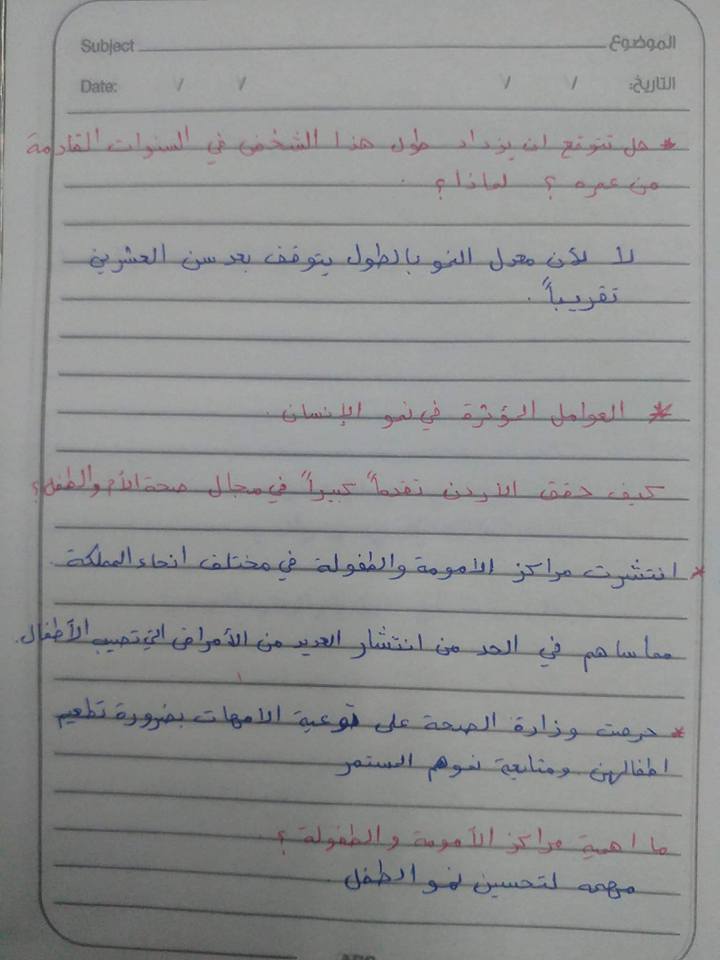 Subject الموضوع
Date: / / / / التاريخ:
* هل تتوقع ان يزداد طول هذا الشخص في السنوات القادمة
من عمره ؟ لماذا ؟
لا لأن معدل النمو بالطول يتوقف بعد سن العشرين
تقريباً .
* العوامل المؤثرة في نمو الإنسان .
كيف حقق الأردن تقدماً كبيراً في مجال صحة الأم والطفل ؟
* انتشرت مراكز الأمومة والطفولة في مختلف انحاء المملكة
مما ساهم في الحد من انتشار العديد من الأمراض التي تصيب الأطفال .
* حرصت وزارة الصحة على توعية الامهات بضرورة تطعيم
اطفالهن ومتابعة نموهم المستمر
ما اهمية مراكز الأمومة والطفولة ؟
مهمه لتحسين نمو الطفل .